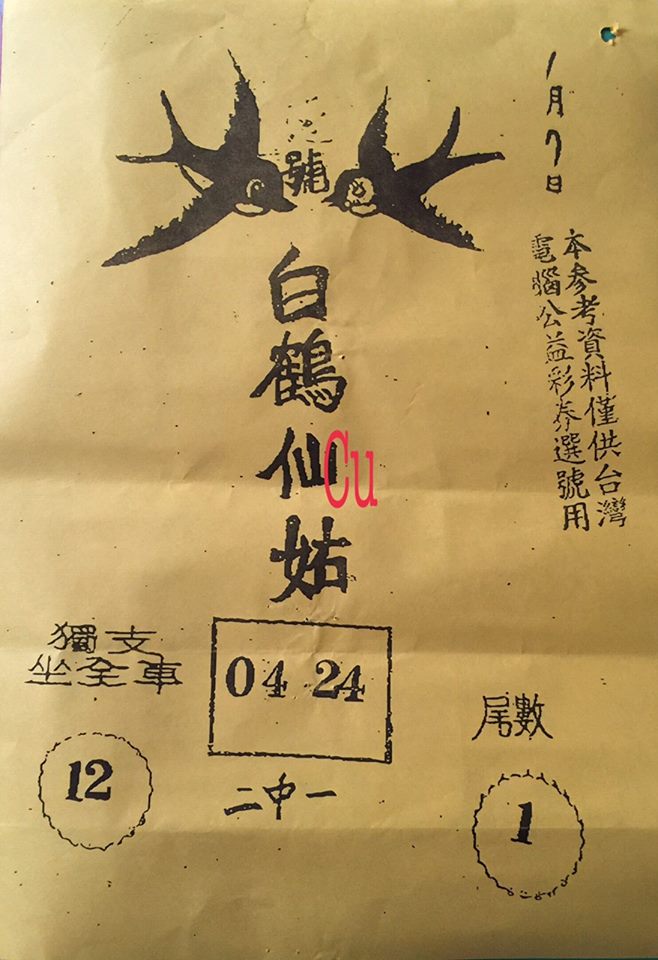 1月7日
本參考資料僅供台灣
電腦公益彩券選號用
號
白鶴仙姑
Cu
獨支
坐全車
12
04 24
二中一
尾數
1